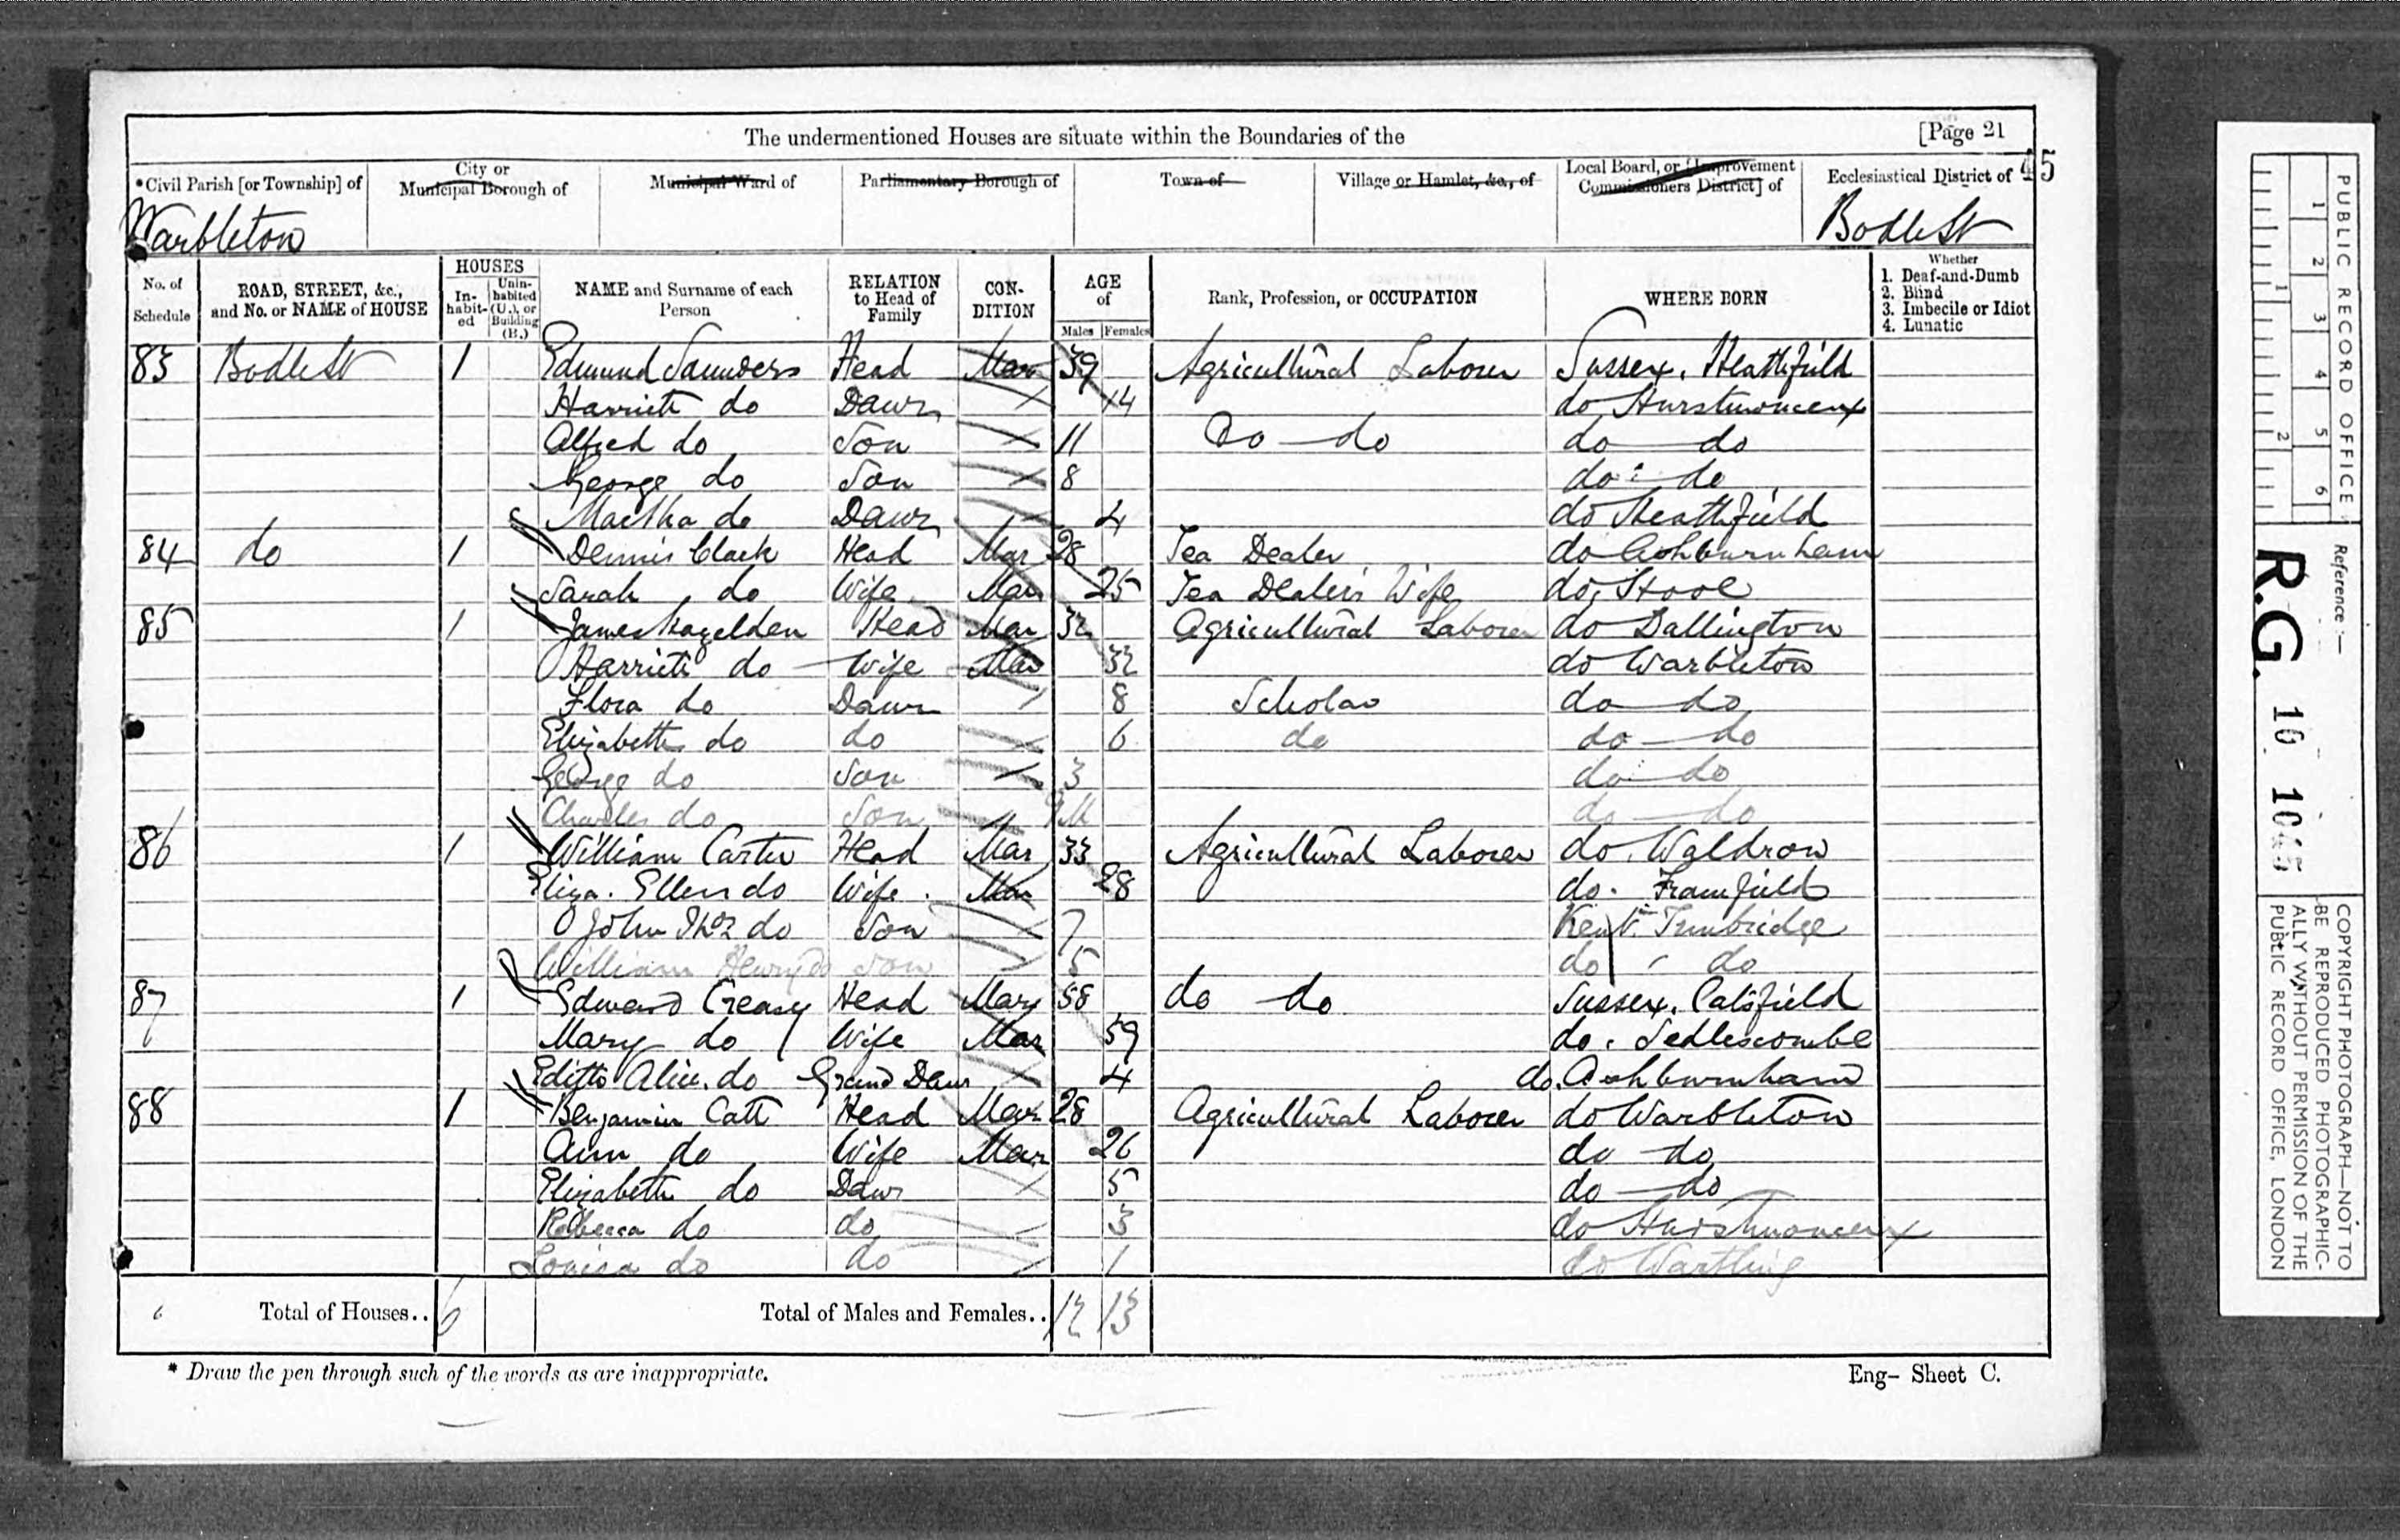 The undermentioned Houses are situate within the Boundaries of the
[Page 21
45
*Civil Parish [or Township] of
City or Municipal Borough of
Municipal Ward of
Parliamentary Borough of
Town of
Village or Hamlet, &c., of
Local Board, or [Improvement Commissioners District] of
Ecclesiastical District of
Warbleton
Bodle St
No. of Schedule
ROAD, STREET, &c., and No. or NAME of HOUSE
HOUSES
In-habit-ed
Unin-habited (U.), or Building (B.)
NAME and Surname of each Person
RELATION to Head of Family
CON-DITION
AGE of
Males
Females
Rank, Profession, or OCCUPATION
WHERE BORN
Whether
1. Deaf-and-Dumb
2. Blind
3. Imbecile or Idiot
4. Lunatic
83 Bodle St 1 Edmund Saunders Head Mar 39 Agricultural Laborer Sussex, Heathfield
Harriett do Daur 14 do Hurstmonceux
Alfred do Son 11 Do do do do
George do Son 8 do do
Martha do Daur 4 do Heathfield
84 do 1 Dennis Clark Head Mar 28 Tea Dealer do Ashburnham
Sarah do Wife Mar 25 Tea Dealer's Wife do, Hooe
85 1 James Hazelden Head Mar 32 Agricultural Laborer do Dallington
Harriett do Wife Mar 32 do Warbleton
Flora do Daur 8 Scholar do do
Elizabeth do do 6 do do do
George do Son 3 do do
Charles do Son 9M do do
86 1 William Carter Head Mar 33 Agricultural Laborer do. Waldron
Eliza. Ellen do Wife Mar 28 do. Framfield
John Thos do Son 7 Kent. Tunbridge
William Henry do Son 5 do do
87 1 Edward Creasy Head Mar 58 do do Sussex, Catsfield
Mary do Wife Mar 59 do. Sedlescombe
Edith Alice do Grand Daur 4 do. Ashburnham
88 1 Benjamin Catt Head Mar 28 Agricultural Laborer do Warbleton
Ann do Wife Mar 26 do do
Elizabeth do Daur 5 do do
Rebecca do do 3 do Hurstmonceux
Louisa do do 1 do Wartling
6 Total of Houses.. 6 Total of Males and Females.. 12 13
* Draw the pen through such of the words as are inappropriate.
Eng- Sheet C.
PUBLIC RECORD OFFICE
1 2 3 4 5 6
1 2
Reference :-
R.G. 10
COPYRIGHT PHOTOGRAPH—NOT TO BE REPRODUCED PHOTOGRAPHIC-ALLY WITHOUT PERMISSION OF THE PUBLIC RECORD OFFICE, LONDON